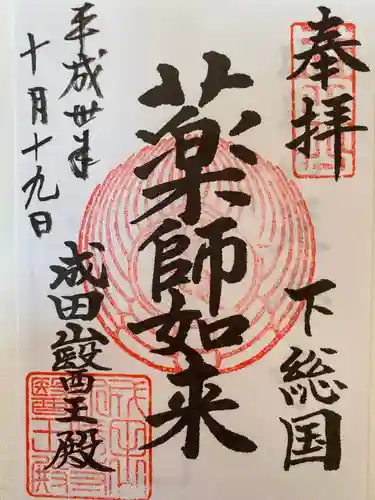 奉拝
下総国
薬師如来
平成卅年
十月十九日
成田山醫王殿